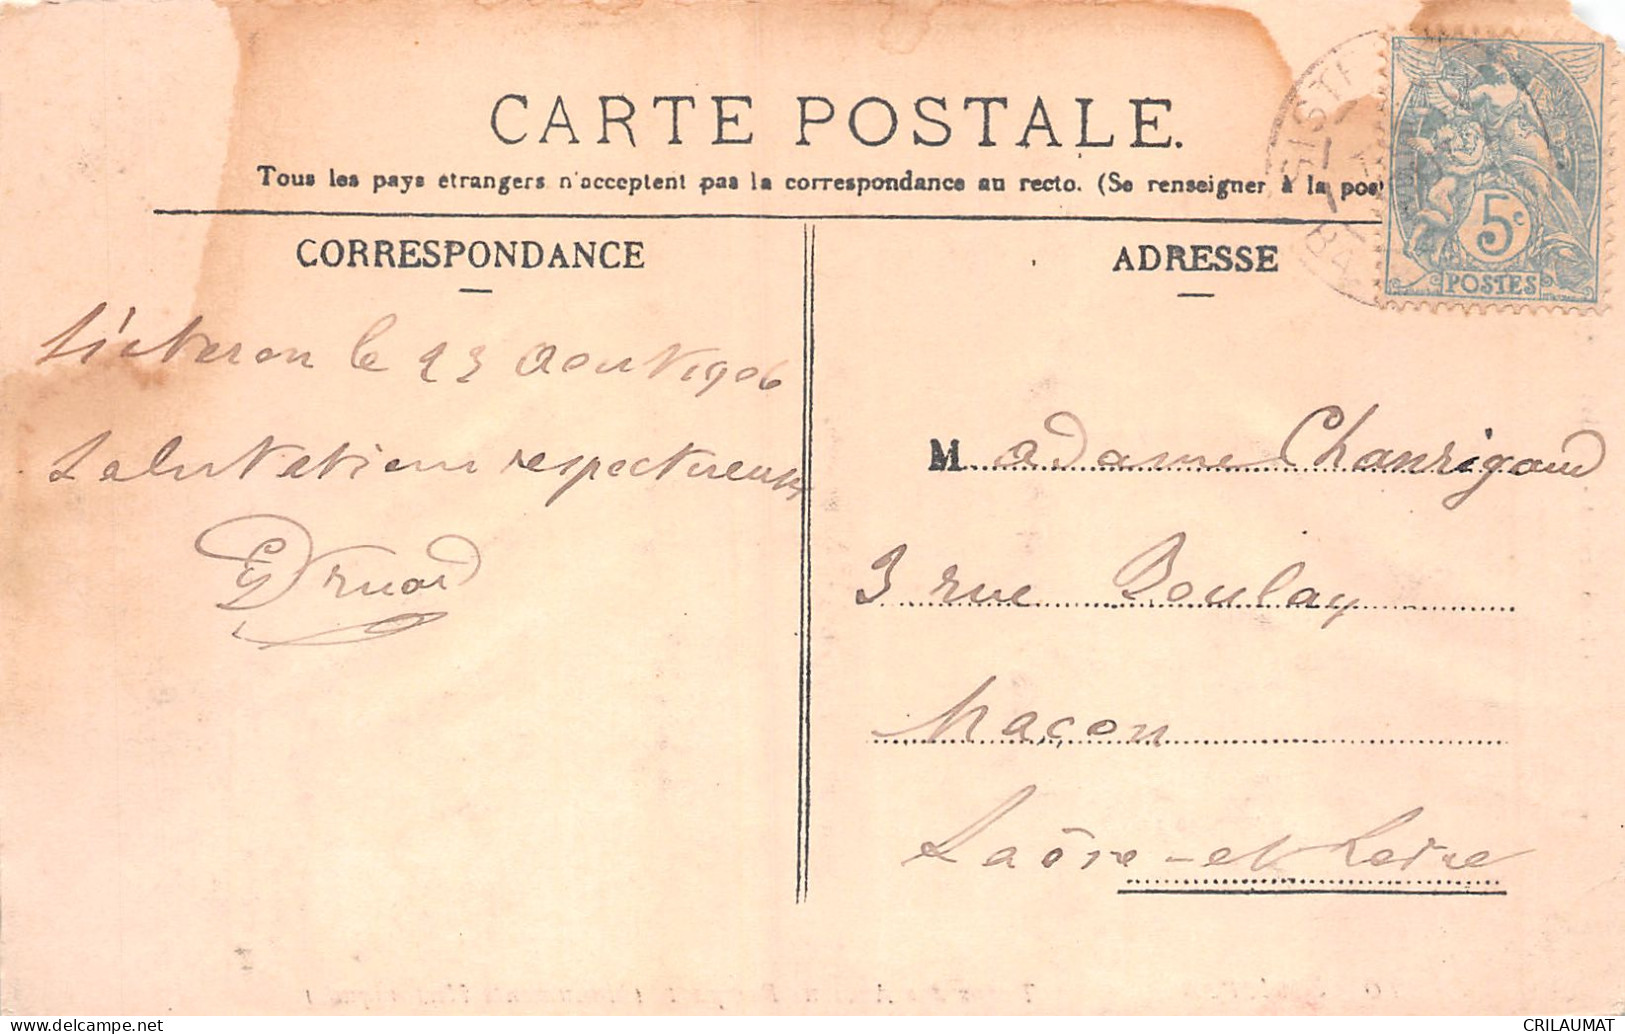 CARTE POSTALE.
Tous les pays étrangers n'acceptent pas la correspondance au recto. (Se renseigner à la pos
CORRESPONDANCE
Sisteron le 23 Aout 1906
Salutations respectueuses
Druard
ADRESSE
Madame Chanrigaud
3 rue Boulay
Macon
Saône-et-Loire
SISTE
BA
5c
POSTES
CRILAUMAT